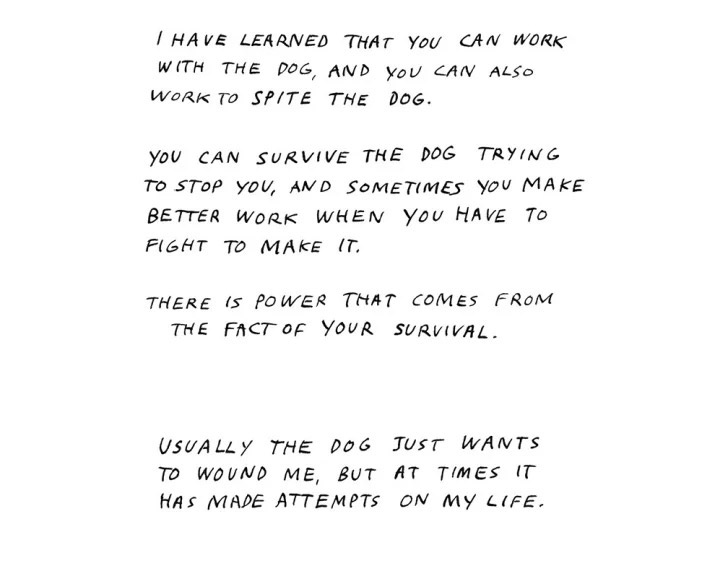 I HAVE LEARNED THAT YOU CAN WORK
WITH THE DOG, AND YOU CAN ALSO
WORK TO SPITE THE DOG.
YOU CAN SURVIVE THE DOG TRYING
TO STOP YOU, AND SOMETIMES YOU MAKE
BETTER WORK WHEN YOU HAVE TO
FIGHT TO MAKE IT.
THERE IS POWER THAT COMES FROM
THE FACT OF YOUR SURVIVAL.
USUALLY THE DOG JUST WANTS
TO WOUND ME, BUT AT TIMES IT
HAS MADE ATTEMPTS ON MY LIFE.